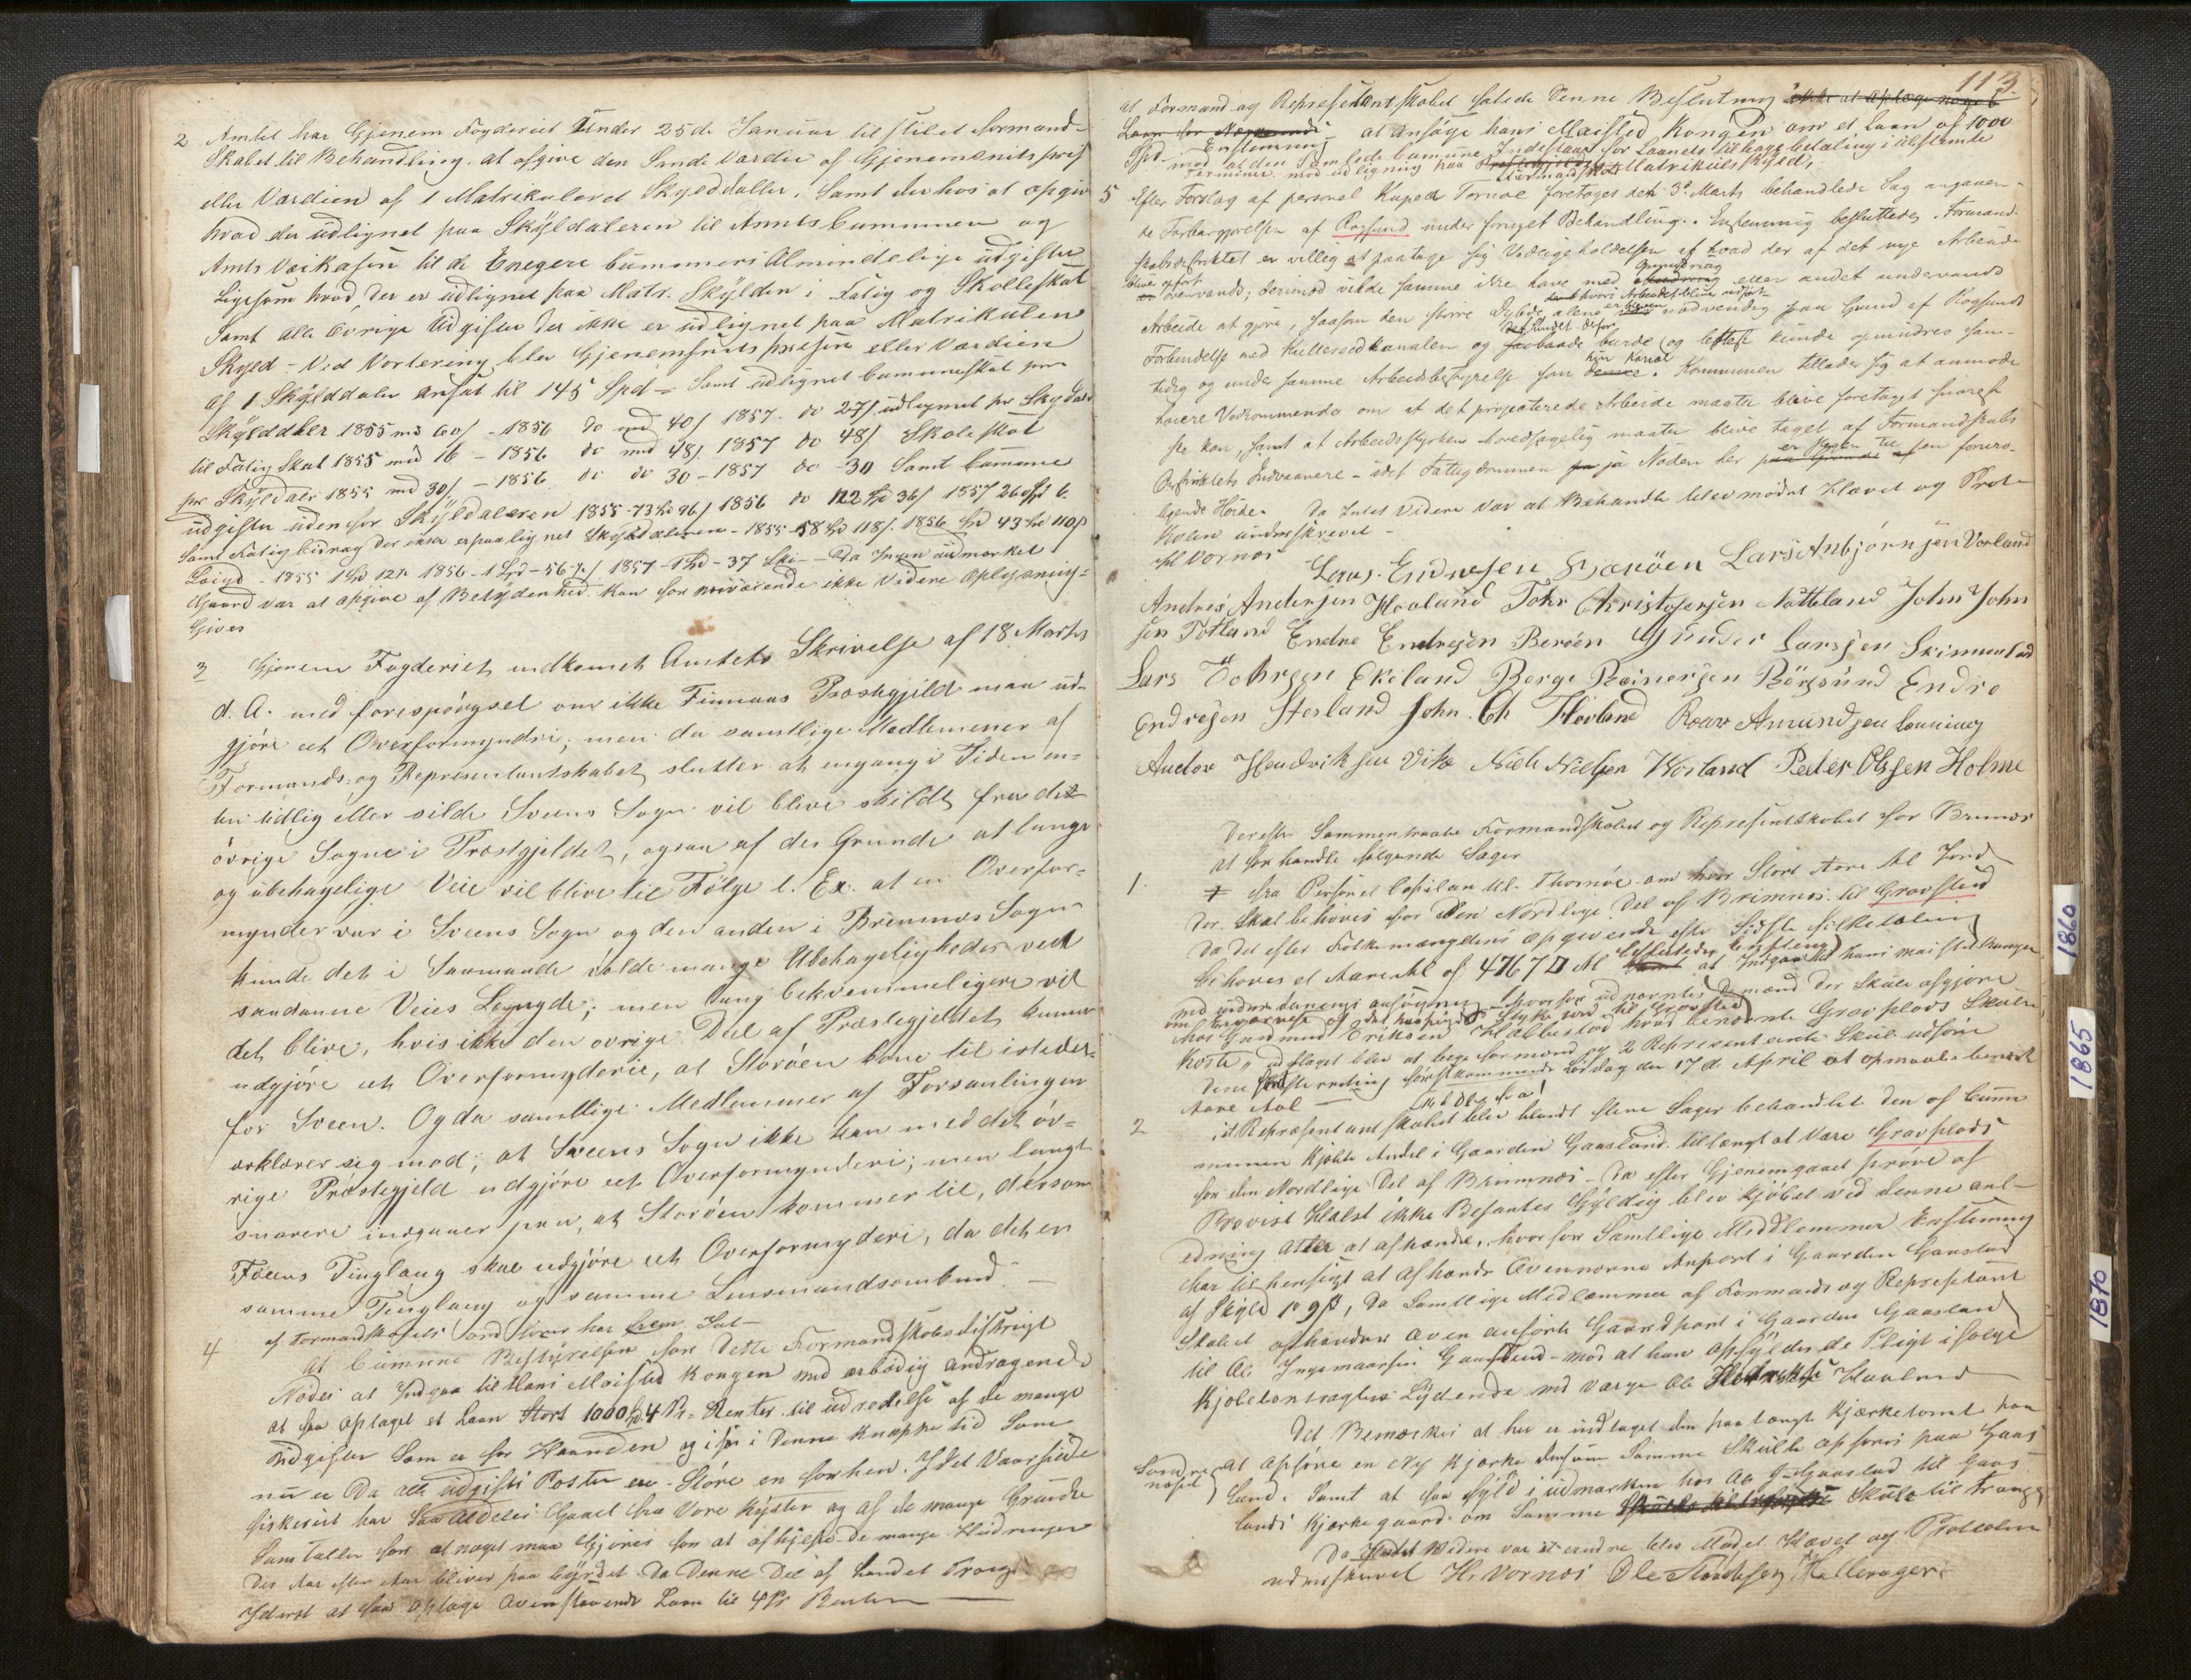 2 Amtet har Gjenem Fogderiet Under 25de Januar tilstilet formand-
Skabet til Behandling at afgive den Sande Værdie af Gjenemsnits pris
eller Værdien af 1 Matrikuleret Skylddaller. Samt derhos at opgive
hvad der udlignet paa Skÿldaleren til Amts Cummunen og
Amts Veikasen til de Enegere Cummuners Almindelige udgifter
Ligesom hvad der er udlignet paa Matr. Skÿlden i Fatig og Skolleskat
Samt alle övrige Udgifter der ikke er udlignet paa Matrikulen
Skyld - Ved Vortering blev Gjenemsnits prisen eller Værdien
af 1 Skÿlddaler ansat til 145 Spd - Samt udlignet Cummuneskat pr
Skÿlddaler 1855 med 60/ - 1856 do med 40/ 1857 do 27/ udlignet pr Skydaler
til Fatig Skat 1855 med 16 - 1856 do med 48/ 1857 do 48/ Skoleskat
pr Skÿldaler 1855 med 30/ - 1856 do do 30 - 1857 do - 30 Samt Cumune
udgifter uden for Skÿldaleren 1855 - 73 96/ 1856 do 122 36/ 1857 260
Samt Fatigbidrag der ikke er paalignet Skyldaleren - 1855 - 58 118/. 1856 43 110/
1855 1 12/ 1856 - 1 Spd - 56 / 1857 - 37 Ski - Da Ingen udmærket
Gaard var at opgive af Betÿdenhed. Kan for nærværende ikke Videre Oplysning
Gives
3 Gjenem Fogderiet indkomet Amtets Skrivelse af 18 Marts
d. A. med forespørgsel om ikke Finnaas Præstegjeld maa ud-
gjöre et Overformynderi; men da samtlige Medlemmer af
Formands- og Representantskabet slutter at engang i Tiden en-
ten tidlig eller silde Sveens Sogn vil blive skildt fra det
övrige Sogne i Præstgjeldet, ogsaa af den Grunde at lange
og ubehagelige Veie vil blive til Fölge t. Ex. at en Overfor-
mynder var i Sveens Sogn og den anden i Bremnes Sogn
kunde det i Saamaade volde mange Ubehageligheder ved
saadanne Veies Længde; men langt bekvemmeligere vil
det blive, hvis ikke den övrige Deel af Præstegjeldet kunne
udgjöre et Overformynderie, at Storöen kom til istedet-
for Sveen. Og da samtlige Medlemmer af Forsamlingen
erklærer sig mod; at Sveens Sogn ikke kan med det öv-
rige Præstegjeld udgjöre et Overformynderi; men langt
snarere indgaaer paa, at Storöen kommer til, dersom
Föiens Tinglaug skal udgjöre et Overformynderi, da det er
samme Tinglaug og samme Lensmandsombud. —
4 af Formandskabets Ord förer har frem Sat —
at Cumune Bestÿrelsen for dette Formandskabsdistrigt
Nödes at Indgaa til Hans Maisted Kongen med ærbödig andragende
at faa optaget et Laan Stort 1000 4 Pr. Renter til udredelse af de mange
Udgifter Som er for Haanden og især i denne knappe tid Som
nu er Da alle udgifts Poster er Störe en forhen. Idet Vaarsilde
fiskeriet har Saa Aldeles Gaaet fra Vore Kÿster og af de mange Grunde
Som taller for at noget maa Gjöres for at afhjelpe de mange Hindringer
Der Aar efter Aar bliver paa bÿrdet. Da Denne Del af Landet Trænger
Yderst at faa optage Ovenstaaende Laan til 4 Pr Renter —
113
at Formand og Represetantskabet fatede Denne Beslutning ikke at optage noget
Laan for Nærværende at ansöge hans Maisted Kongen om et Laan af 1000
Spd Enstemmig
mod at den Samlede Cumune Indestaar for Laanets tilbage betaling i afstemte
Terminer med udligning paa Matrikuls Skyld.
5 Efter Forslag af personel Kapelan Tornöe foretoges den 3d. Marts behandlede Sag angaaen-
de Farbargjörelsen af Røgsund under fornyet Behandling. Enstemmig besluttedes. Formand-
skabsdistriktet er villig at paatage sig Vedligeholdelsen af hvad der af det nye Arbeide
bliver opfört
er ovenvands; derimod vilde samme ikke have med Grundring eller andet undervands
Arbeide at gjöre, saasom den större Dybde alene er nödvendig paa Grund af Rogsunds
hvori Arbeidet blive udfört
Forbindelse med Kulleseidkanalen og burde og lettest kunde opmudres sam-
tidig og under samme Arbeidsbestyrelse som denne hin Kanal. Kommunen tillader sig at anmode
höiere Vedkommende om at det projecterede Arbeide maatte blive foretaget snarest
ske kan, samt at Arbeidsstyrken hovedsagelig maatte blive taget af Formandskabs
Distriktets Indvaanere - idet Fattigdommen ja Nöden her er stegen til en forurol-
igende Höide. Da Intet Videre Var at Behandle blev mödet Hævet og Prot-
kolen underskrevet -
H Vornæs
Lars Endresen Særöen Lars Anbjörnsen Vorland
Andres Andersen Hovland Tohr Christofersen Nötteland John John
sen Totland Endre Endresen Beröen Gunder Larssen Skimmeland
Lars Tohrsen Ekeland Berge Reinersen Rögsund Endre
Endresen Stesland John Ch Hovland Roar Amundsen Lønning
Auctor Hendriksen Vik Niels Nielsen Vorland Peder Olssen Holme
Derefter Sammentraate Formandskabet og Represintskabet for Bremnes
at forhandle fölgende Sager
1. fra Personel Capilan Hl. Thornöe om hvor Stort Aare Al Jord
Der Skal behöves for Den Nordlige Del af Brimnes til Gravsted
Da Det efter Folkemængdens opgivende efter Sidste folketæling
behoves et Aare Al of 4767 Al besluttedes Enstemig at Indgaa til hans maisted Kongen
med underdanigst ansögning hvorfor udnævntes mænd der Skule afgjöre
om Ervervelse af det Stykke Jord til Gravsted
hos Gudmund Eriksen Habbestad hvad benævnte Gravplads Skulde
koste, udtaget blev at bege formænd og 2 Representante Skul udföre
Dene forretning förstkommende Lördag den 17 de April at opmaale benævnte
Aare Aal —
2 i Repræsentantskabet blev blandt flere Sager behandlet Den af Cum
munen Kjöbte Andel i Gaarden Gaasland tillængt at Være Gravplads
for den Nordlige Del af Brimnes - Da efter Gjenemgaaet pröve af
Provist Hlalst ikke Befantes Gÿldig blev Kjöbet ved denne anl-
edning Atter at afhænde, hvorfor Samtlige Meddlemmer Enstemig
har til hensigt at Afhænde Ovennævnte Anpart i Gaarden Gaasland
af Skÿld 1 9, Da Samtlige Medlemmer af Formands og Represetant
Skabet afhænder Oven anförte Gaardpart i Gaarden Gaasland
til Ole Ingemaarsen Gaasland - mod at han opfÿlder de Pligt ifölge
Kjöbekontragten Lÿdende med Værge Ole Haaland
Det Bemærkes at her er indtaget den paatængt Kjærketomt paa
Söndre næset at opföre en Ny Kjærke dersom Samme Skulde opföres paa Gaas
lund. Samt at faa fÿld i udmarken hos Ole J. Gaaslad til Gaas-
lands Kjærkegaard om Samme Skulde til trænges
Da Indet Videre var at ændre blev Mödet Hævet og Protcolen
undreskrevet H. Vornæs Ole Hallerager
1860
1865
1870